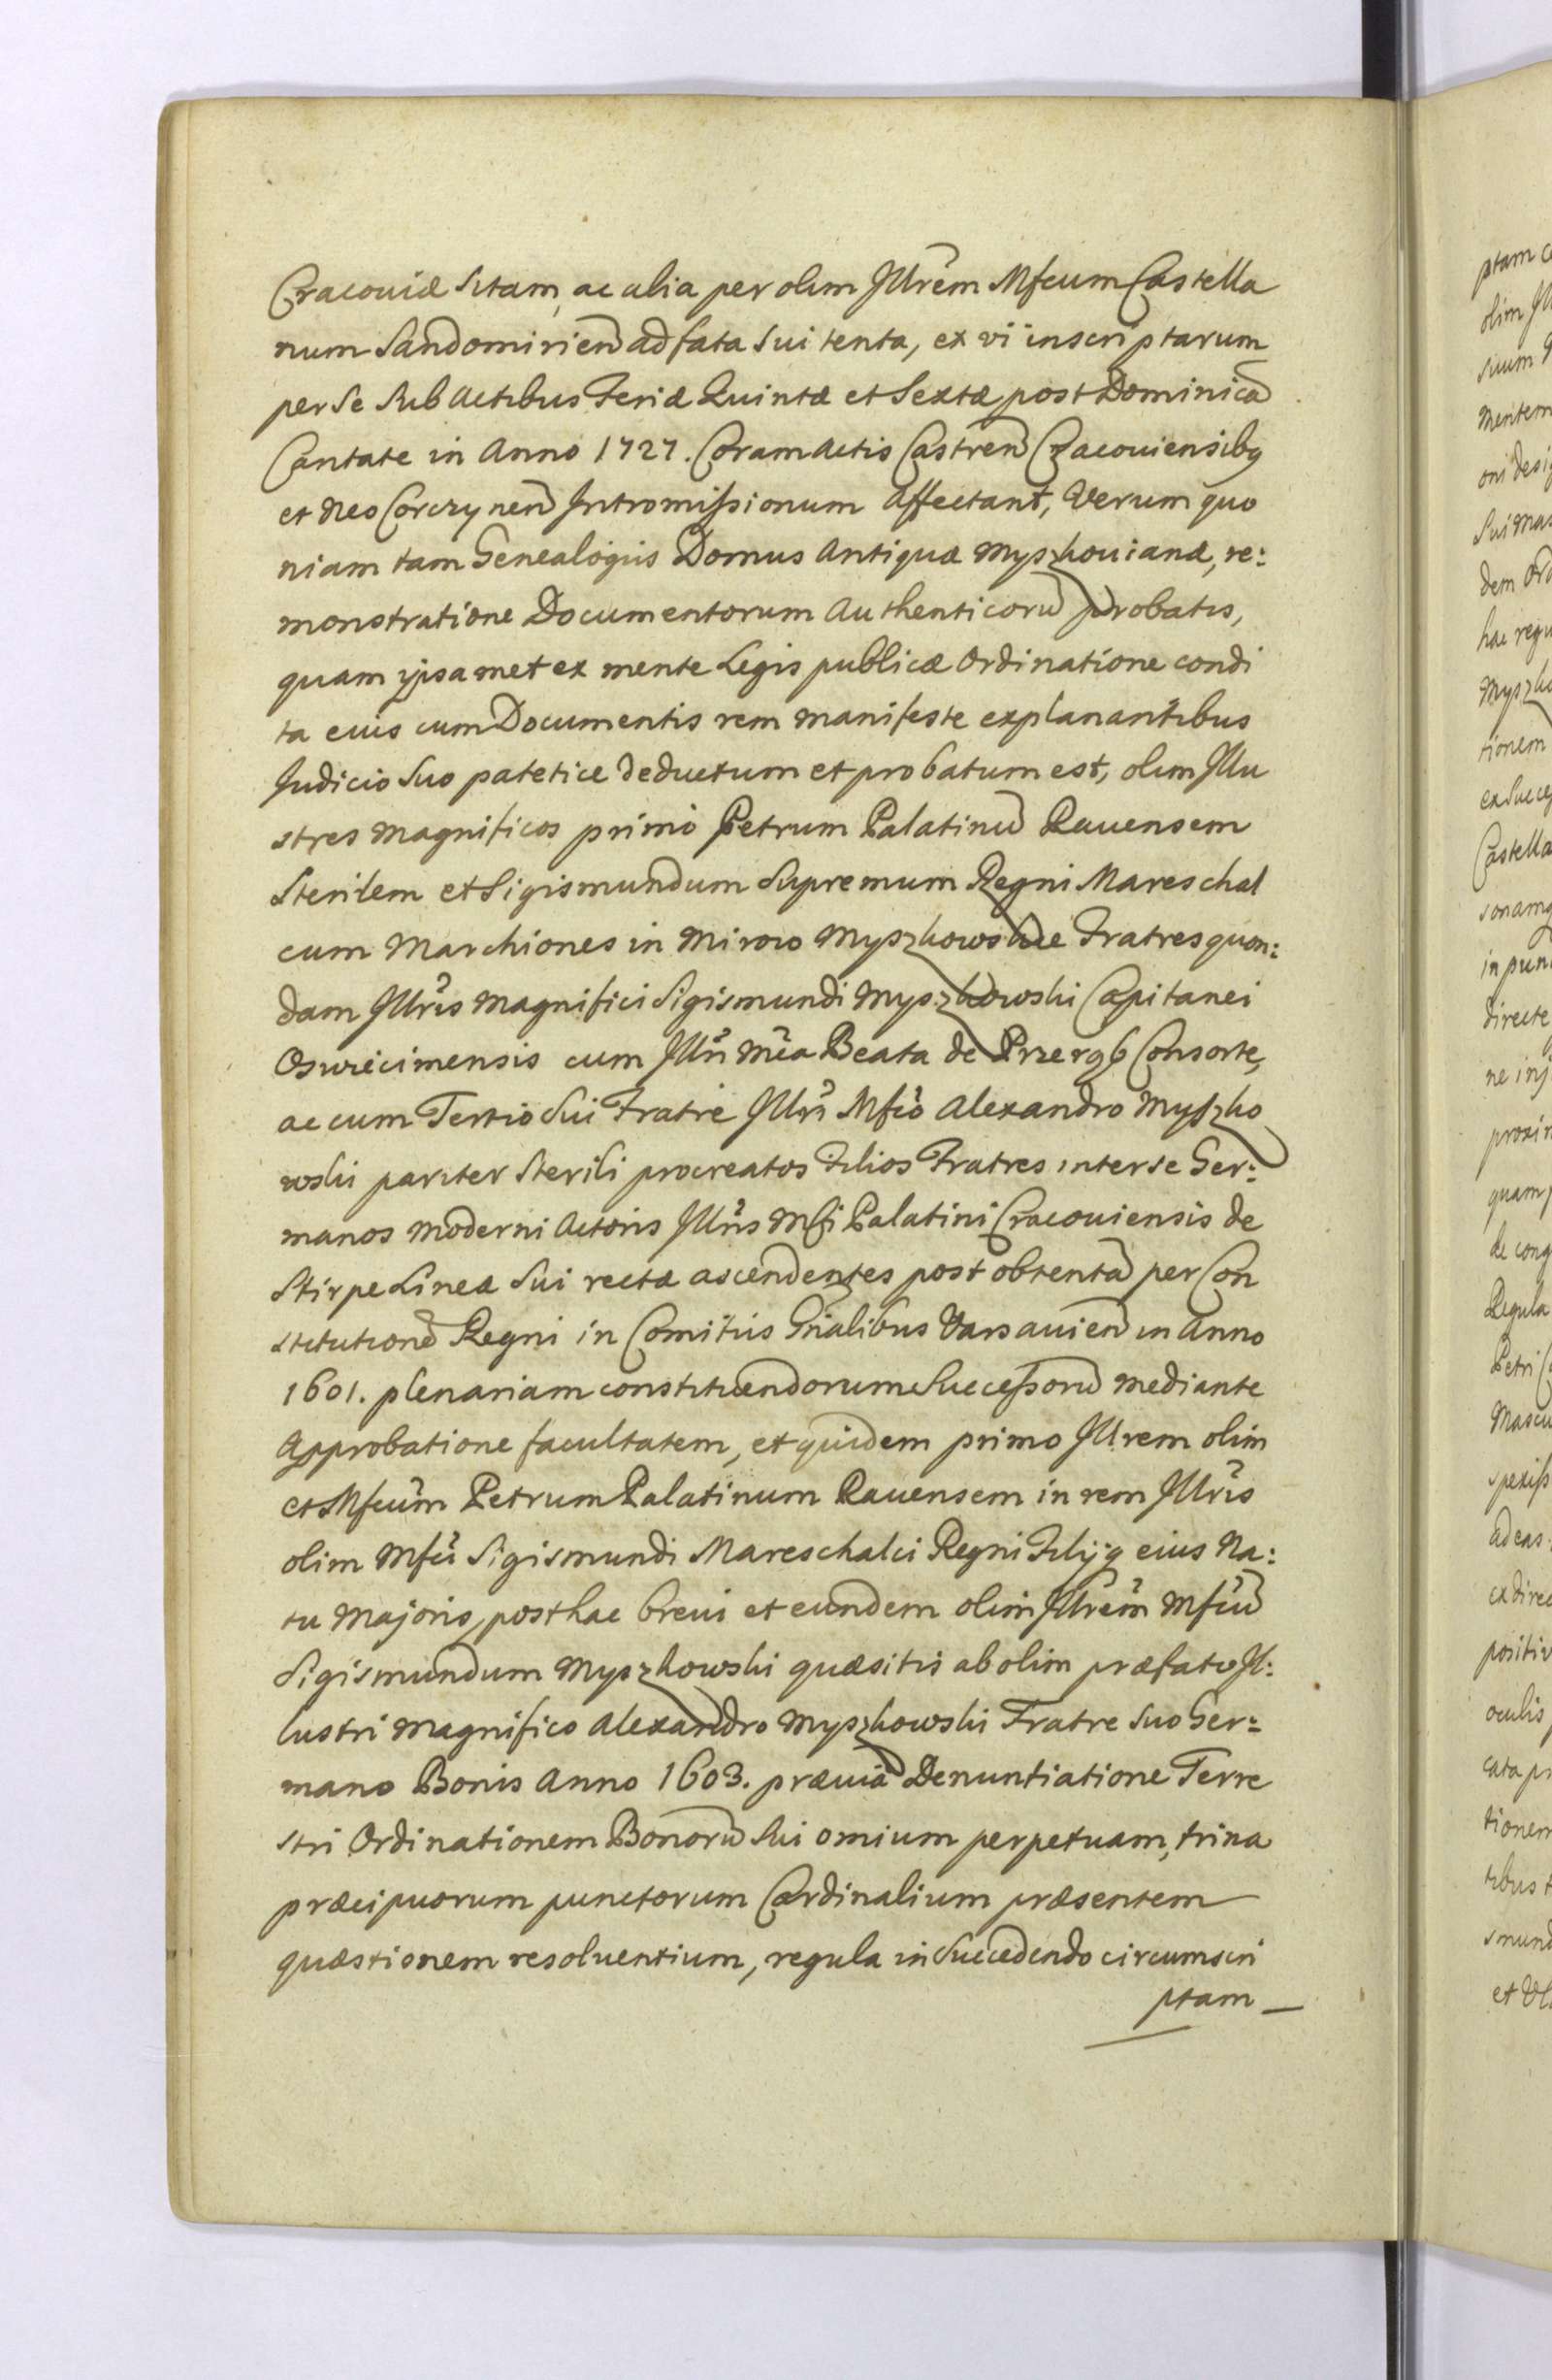 Cracoviæ Sitam, ac alia per olim Jllrem Mfcum Castella
num Sandomirien̄ ad fata Sui tenta, ex vi inscriptarum
per Se Sub Actibus Feriæ Quintæ et Sextæ post Dominicā
Cantate in Anno 1727. Coram Actis Castren̄ Cracouiensibq
et Neo Corczynen̄ Intromissionum Affectant, Verum quo
niam tam Genealogiis Domus Antiquæ Myszkouianæ, re:
monstratione Documentorum Authenticorū probatis,
quam ipsamet ex mente Legis publicæ Ordinatione condi
ta eius cum Documentis rem manifeste explanantibus
Judicio Suo patetice deductum et probatum est, olim Jllu
stres Magnificos primò Petrum Palatinū Rauensem
Sterilem et Sigismundum Supremum Regni Mareschal
cum Marchiones in Mirow Myszkowskie Fratres quon:
dam Jllris Magnifici Sigismundi Myszkowski Capitanei
Oswiecimensis cum Jllri Mca Beata de Przeręb Consorte,
ac cum Tertio Sui Fratre Jllri Mfco Alexandro Myszko
wski pariter Sterili procreatos Filios Fratres inter se Ger:
manos moderni Actoris Jllris Mfi Palatini Cracouiensis de
Stirpe Lineæ Sui rectæ ascendentes post obtentā per Con
stitutionē Regni in Comitiis Gnalibus Varsauien̄ in Anno
1601. plenariam constituendorum Successorū mediante
Approbatione facultatem, et quidem primo Jllrem olim
et Mfcum Petrum Palatinum Rauensem in rem Jllris
olim Mfci Sigismundi Mareschalci Regni Filijq eius Na:
tu Majoris, posthac breui et eundem olim Jllrem Mfcū
Sigismundum Myszkowski quæsitis ab olim præfato Jl:
lustri Magnifico Alexandro Myszkowski Fratre Suo Ger:
mano Bonis Anno 1603. præuiā Denuntiatione Terre
stri Ordinationem Bonorū Sui omium perpetuam, trina
præcipuorum punctorum Cardinalium præsentem
quæstionem resoluentium, regula in Succedendo circumscri
ptam